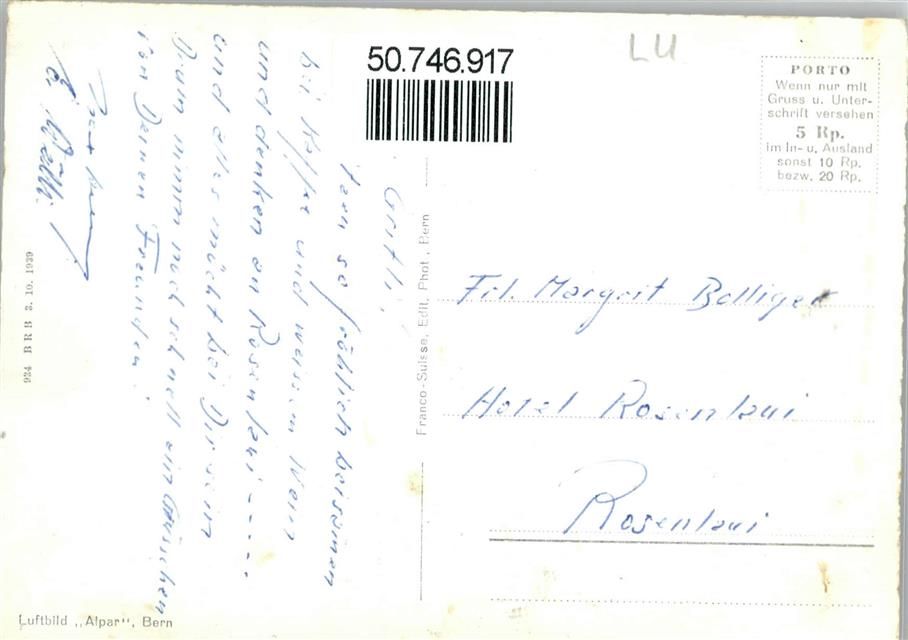 50.746.917
LU
PORTO
Wenn nur mit
Gruss u. Unter-
schrift versehen
5 Rp.
im In- u. Ausland
sonst 10 Rp.
bezw. 20 Rp.
Gritli,
so fröhlich beisamen
bei Kaffe und weissem Wein
und denken an Rosenlaui - - - -
und alles möcht bei Dir sein
Drum nimm noch schnell ein Grüsschen
von Deinen Freunden!
Franco-Suisse, Edit. Phot., Bern
Frl. Margrit Bolliger
Hotel Rosenlaui
Rosenlaui
934 BRB 3. 10. 1939
Luftbild „Alpar", Bern